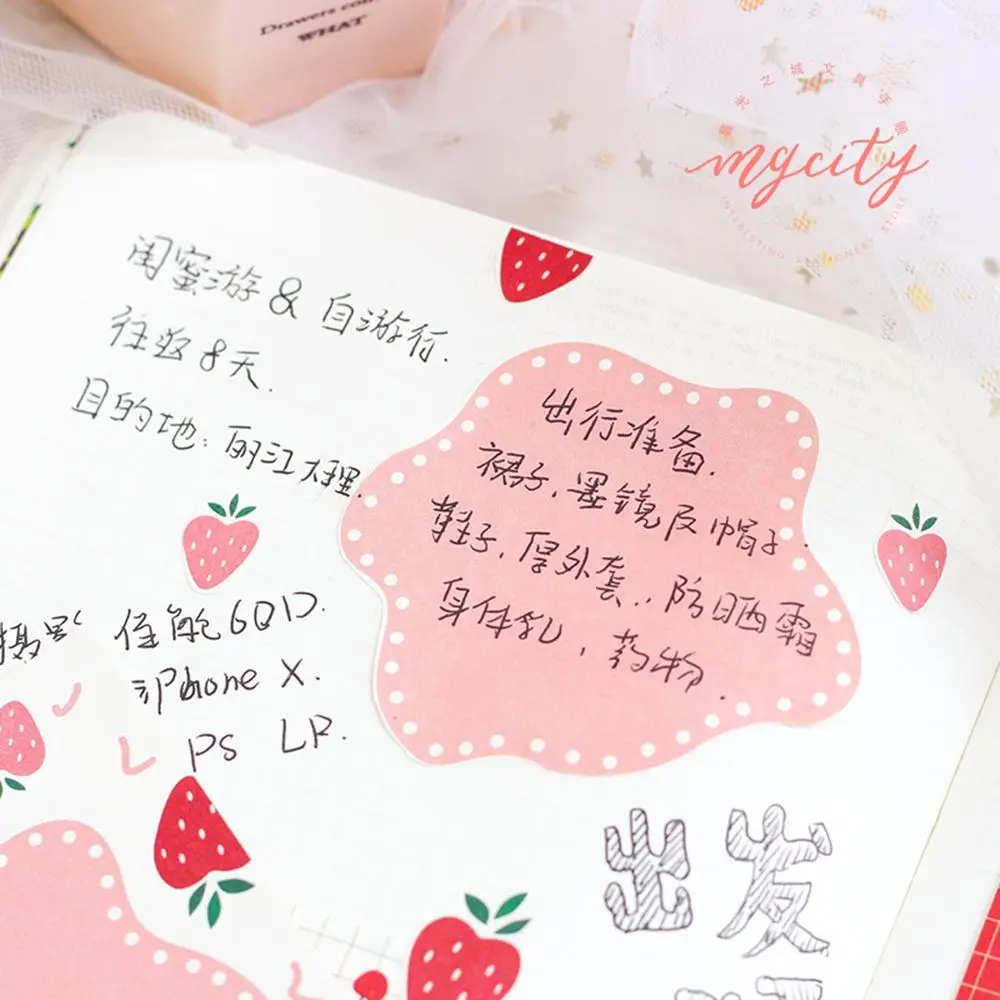 Drawers
WHAT
文具
mgcity
INTERESTING STATIONERY STORE
闺蜜游 & 自游行.
往返8天.
目的地: 丽江 大理.
出行准备.
裙子, 墨镜及帽子.
鞋子, 厚外套, 防晒霜
身体乳, 药物.
佳能60D.
iPhone X.
PS LR.
出发